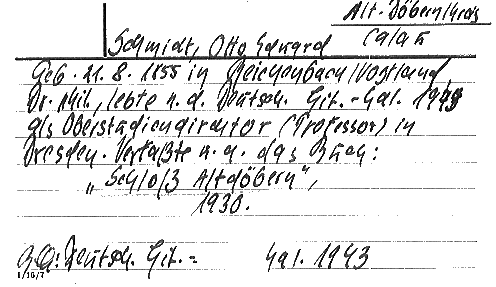 Alt-Döbern/Kreis
Calau
Schmidt, Otto Eduard
Geb. 21. 8. 1855 in Reichenbach/Vogtland,
Dr. phil., lebte n. d. Deutsch. Lit.-Kal. 1943
als Oberstudiendirektor (Professor) in
Dresden. Verfaßte u. a. das Buch:
"Schloß Altdöbern",
1930.
Deutsch. Lit.- Kal. 1943
1/16/7